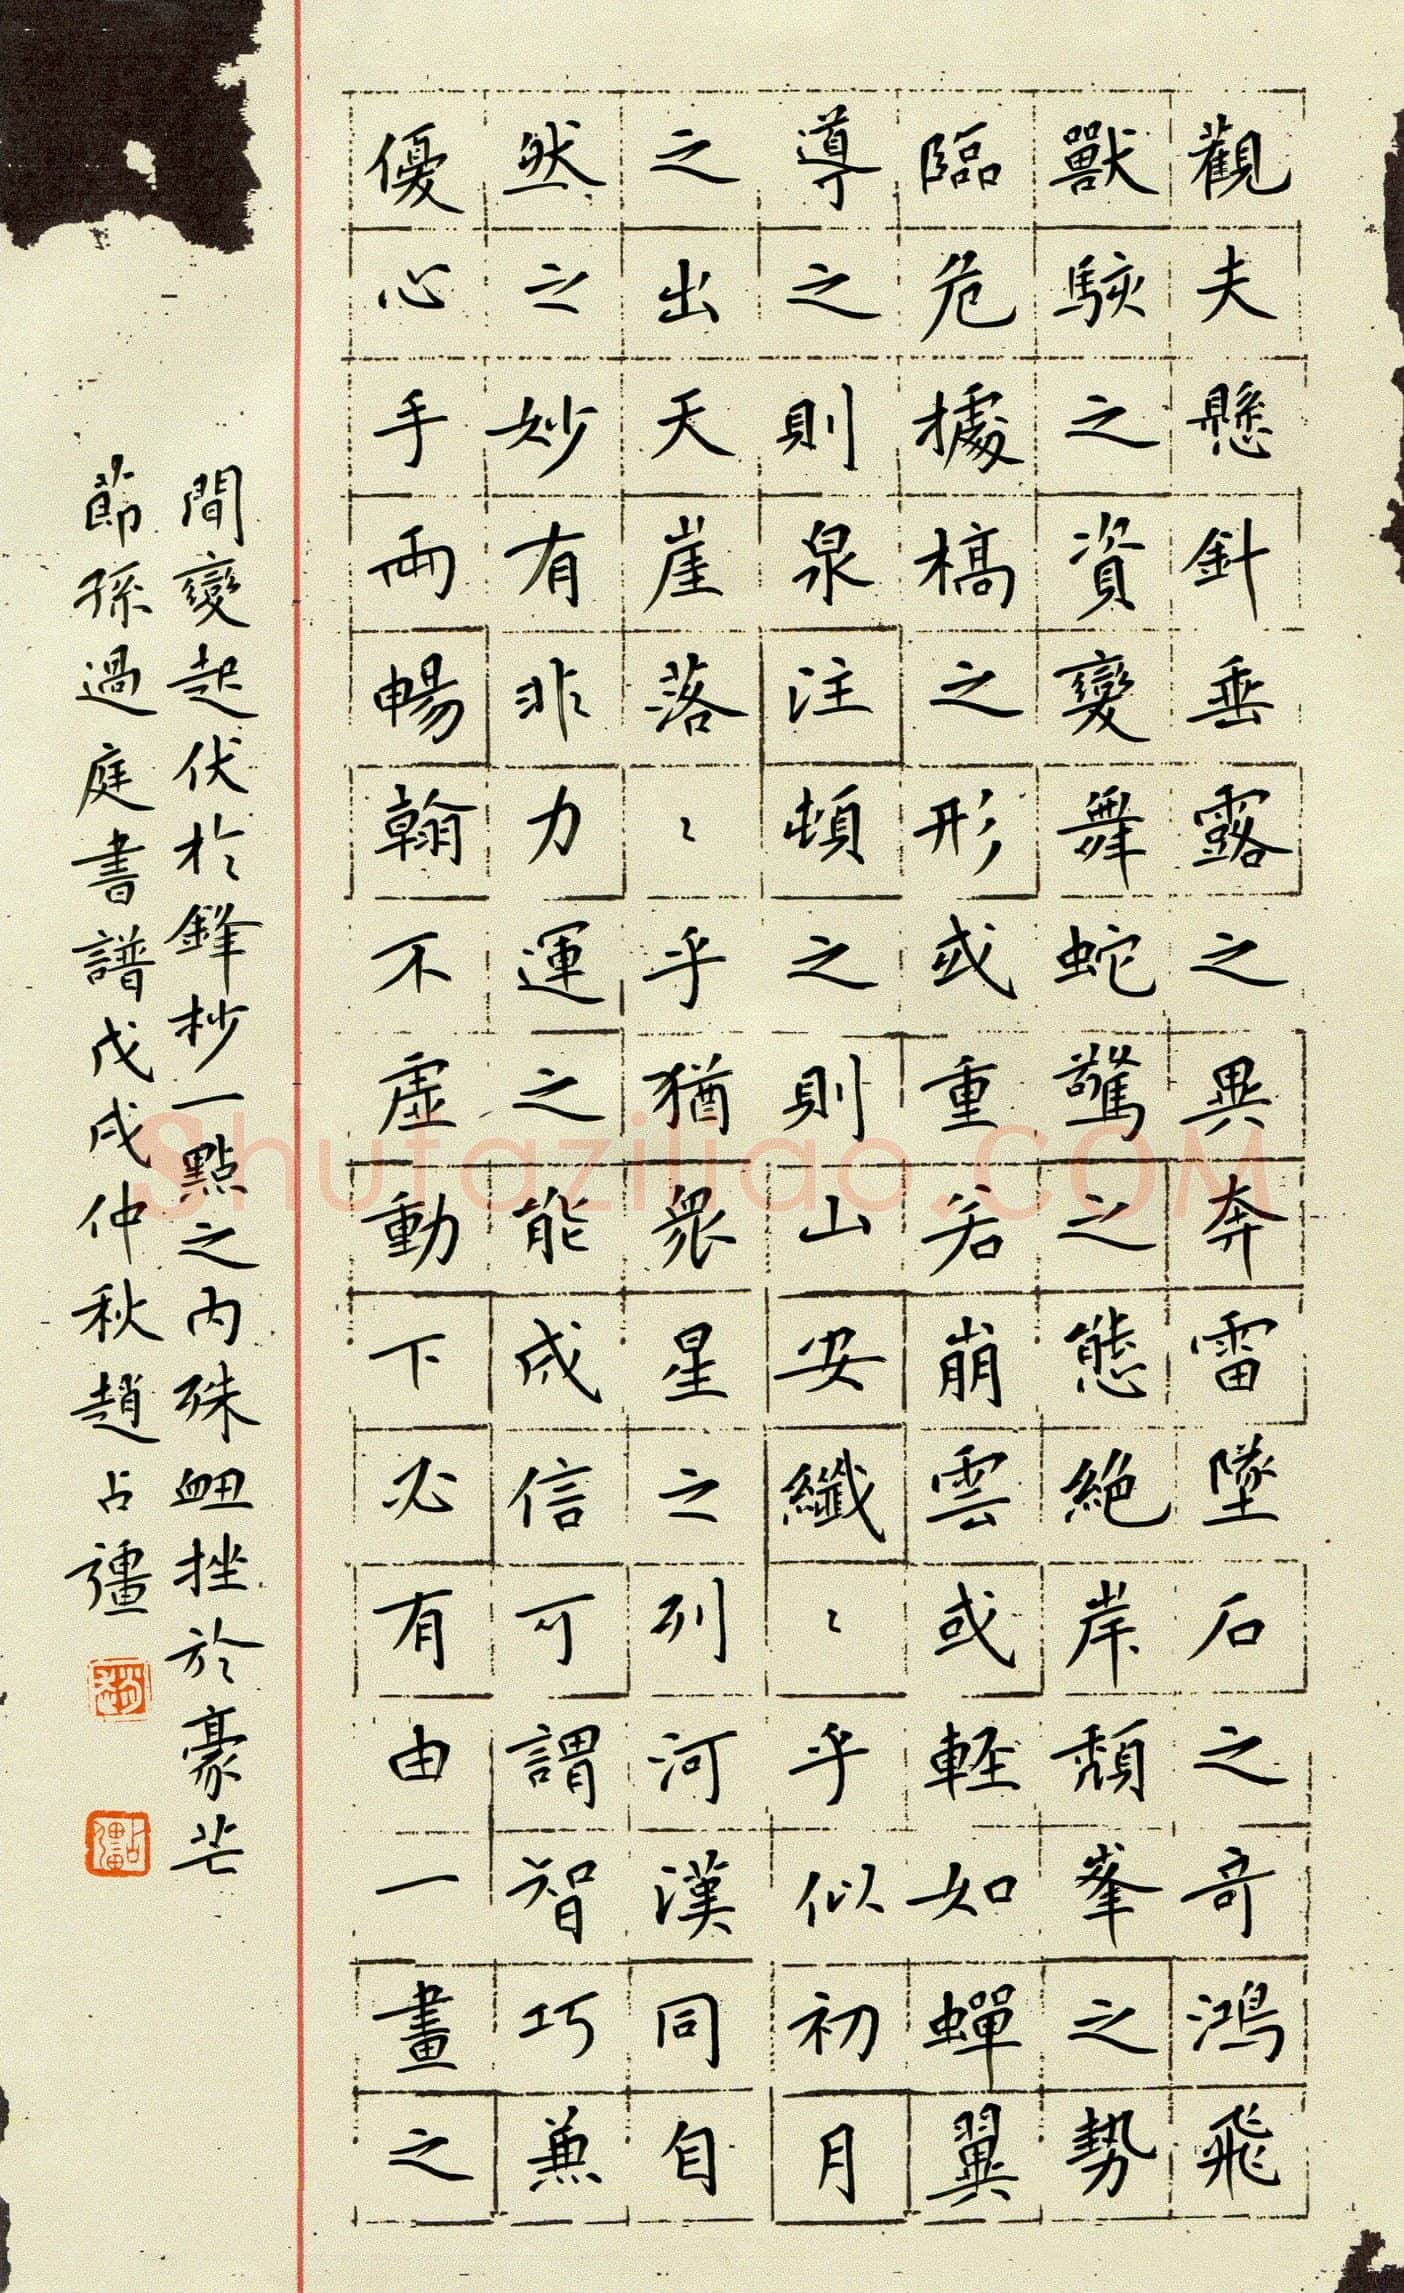 觀夫懸針垂露之異奔雷墜石之奇鴻飛
獸駭之資變舞蛇驚之態絶岸頹峯之勢
臨危據槁之形或重若崩雲或輕如蟬翼
導之則泉注頓之則山安纖〻乎似初月
之出天崖落〻乎猶衆星之列河漢同自
然之妙有非力運之能成信可謂智巧兼
優心手雨暢翰不虛動下必有由一畫之
間變起伏於鋒杪一點之內殊衄挫於豪芒
節孫過庭書譜戊戌仲秋趙占彊
Shufaziliao.COM